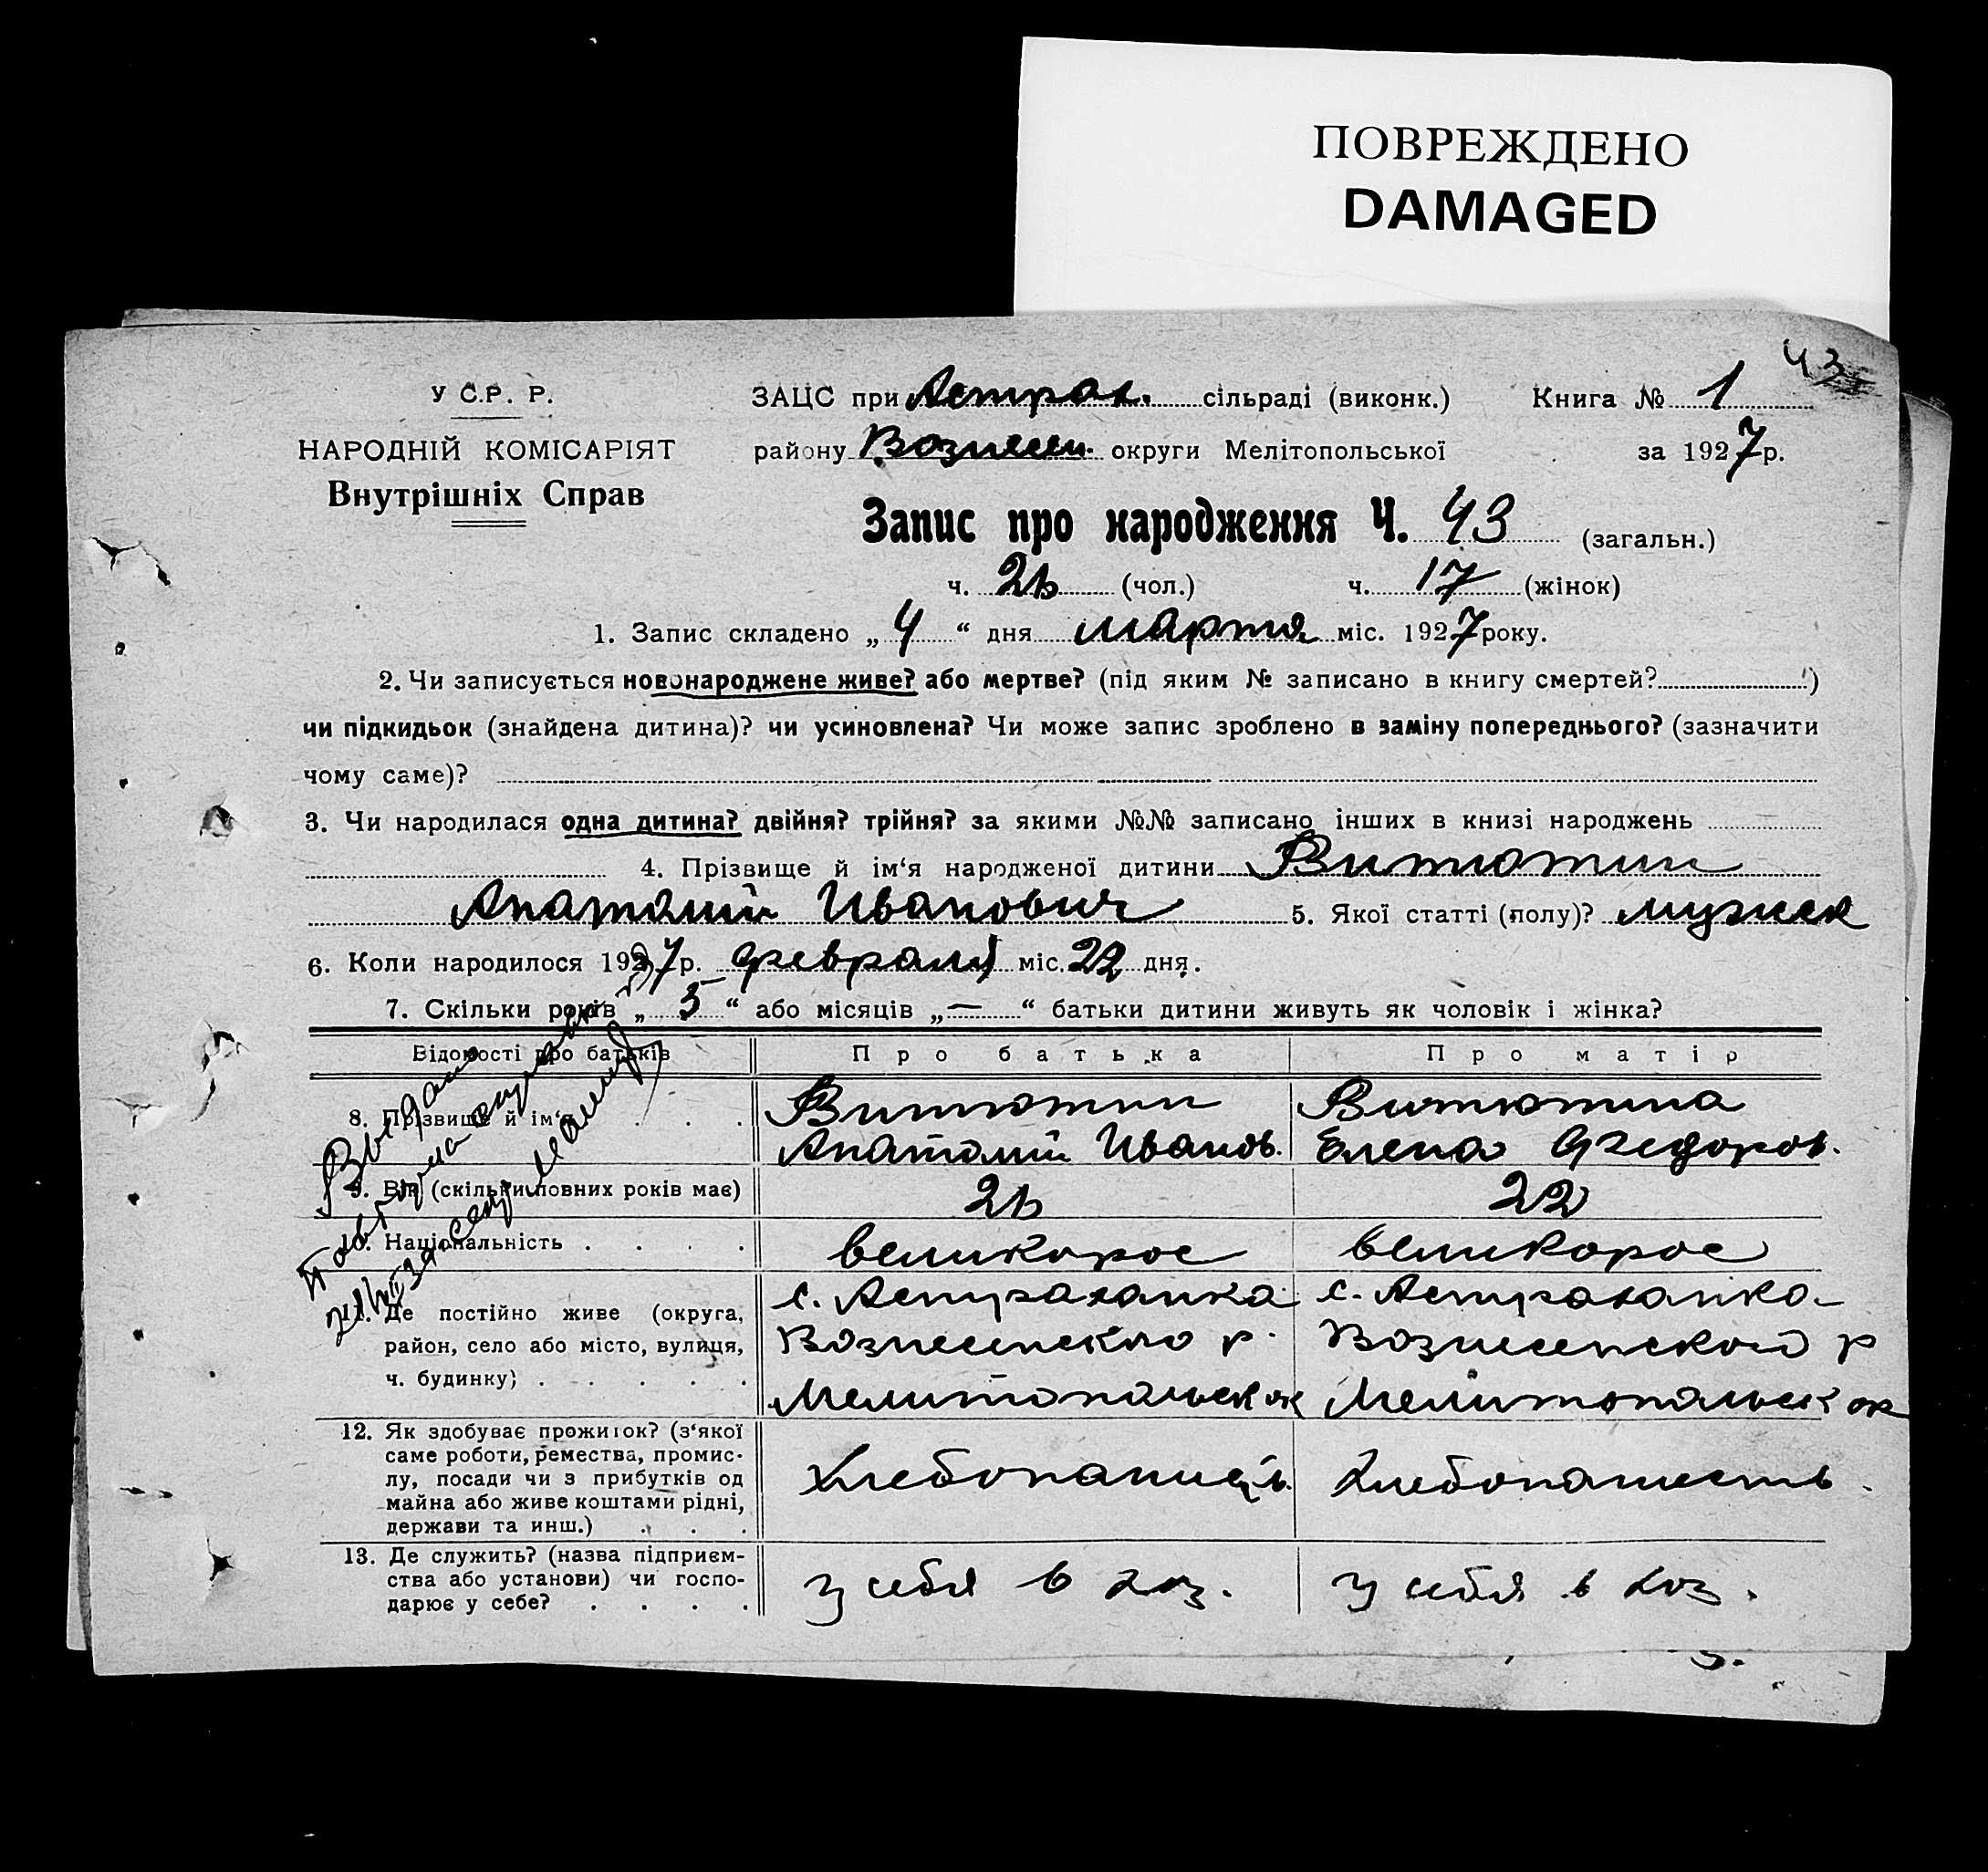 ПОВРЕЖДЕНО
DAMAGED
43
У С.Р. Р.
НАРОДНІЙ КОМІСАРІЯТ
Внутрішніх Справ
ЗАЦС при Астрах. сільраді (виконк.) Книга № 1
району Вознесен. округи Мелітопольської за 1927 р.
Запис про народження Ч. 43 (загальн.)
ч. 26 (чол.) ч. 17 (жінок)
1. Запис складено „ 4 “ дня марта міс. 1927 року.
2. Чи записується новонароджене живе? або мертве? (під яким № записано в книгу смертей? )
чи підкидьок (знайдена дитина)? чи усиновлена? Чи може запис зроблено в заміну попереднього? (зазначити
чому саме)?
3. Чи народилася одна дитина? двійня? трійня? за якими №№ записано інших в книзі народжень
4. Прізвище й ім‘я народженої дитини Витютин
Анатолий Иванович 5. Якої статті (полу)? мужск
6. Коли народилося 1927 р. февраля міс. 22 дня.
7. Скільки років „ 5 “ або місяців „ — “ батьки дитини живуть як чоловік і жінка?
Відомості про батьків Про батька Про матір
8. Прізвище й ім‘я . . . Витютин Витютина
Анатолий Иванов. Елена Федоров.
9. Вік (скільки повних років має) 26 22
10. Національність . . . . великорос великорос
11. Де постійно живе (округа, с. Астраханка с. Астраханка
район, село або місто, вулиця, Вознесенского р. Вознесенской р
ч. будинку) . . . . . Мелитопольск ок Мелитопольск ок
12. Як здобуває прожиток? (з‘якої
саме роботи, ремества, промис-
лу, посади чи з прибутків од
майна або живе коштами рідні,
держави та инш.) . . .
Хлебопашец. Хлебопашеств.
13. Де служить? (назва підприєм-
ства або установи) чи госпо-
дарює у себе? . . . .
У себя в хоз. У себя в хоз.
Выдано